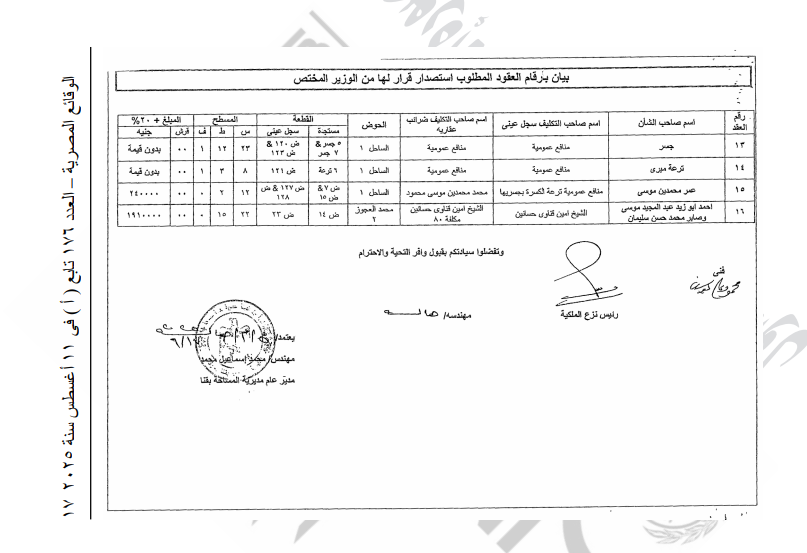 الوقائع المصرية – العدد ١٧٦ تابع ( أ ) فى ١١ أغسطس سنة ٢٠٢٥ ١٧
بيان بأرقام العقود المطلوب استصدار قرار لها من الوزير المختص
رقم العقد اسم صاحب الشأن اسم صاحب التكليف سجل عينى اسم صاحب التكليف ضرائب عقاريه الحوض القطعة المسطح المبلغ + ٢٠%
مستجدة سجل عينى س ط ف قرش جنيه
١٣ جسر منافع عمومية منافع عمومية الساحل ١ ٥ جسر & ٧ جسر ض ١٢٠ & ض ١٢٣ ٢٣ ١٢ ١ ٠٠ بدون قيمة
١٤ ترعة ميرى منافع عمومية منافع عمومية الساحل ١ ٦ ترعة ض ١٢١ ٨ ٣ ١ ٠٠ بدون قيمة
١٥ عمر محمدين موسى منافع عمومية ترعة لكسرة بجسريها محمد محمدين موسى محمود الساحل ١ ض ٧ & ض ١٥ ض ١٢٧ & ض ١٢٨ ١٢ ٢ ٠ ٠٠ ٢٤٠٠٠٠
١٦ احمد ابو زيد عبد المجيد موسى وصابر محمد حسن سليمان الشيخ امين قناوى حسانين الشيخ امين قناوى حسانين مكلفة ٨٠ محمد العجوز ٢ ض ١٤ ض ٢٣ ٢٢ ١٥ ٠ ٠٠ ١٩١٠٠٠٠
وتفضلوا سيادتكم بقبول وافر التحية والاحترام
فنى
رئيس نزع الملكية
مهندسه/
يعتمد/
مهندس/ محمد إسماعيل محمد
مدير عام مديرية المساحة بقنا